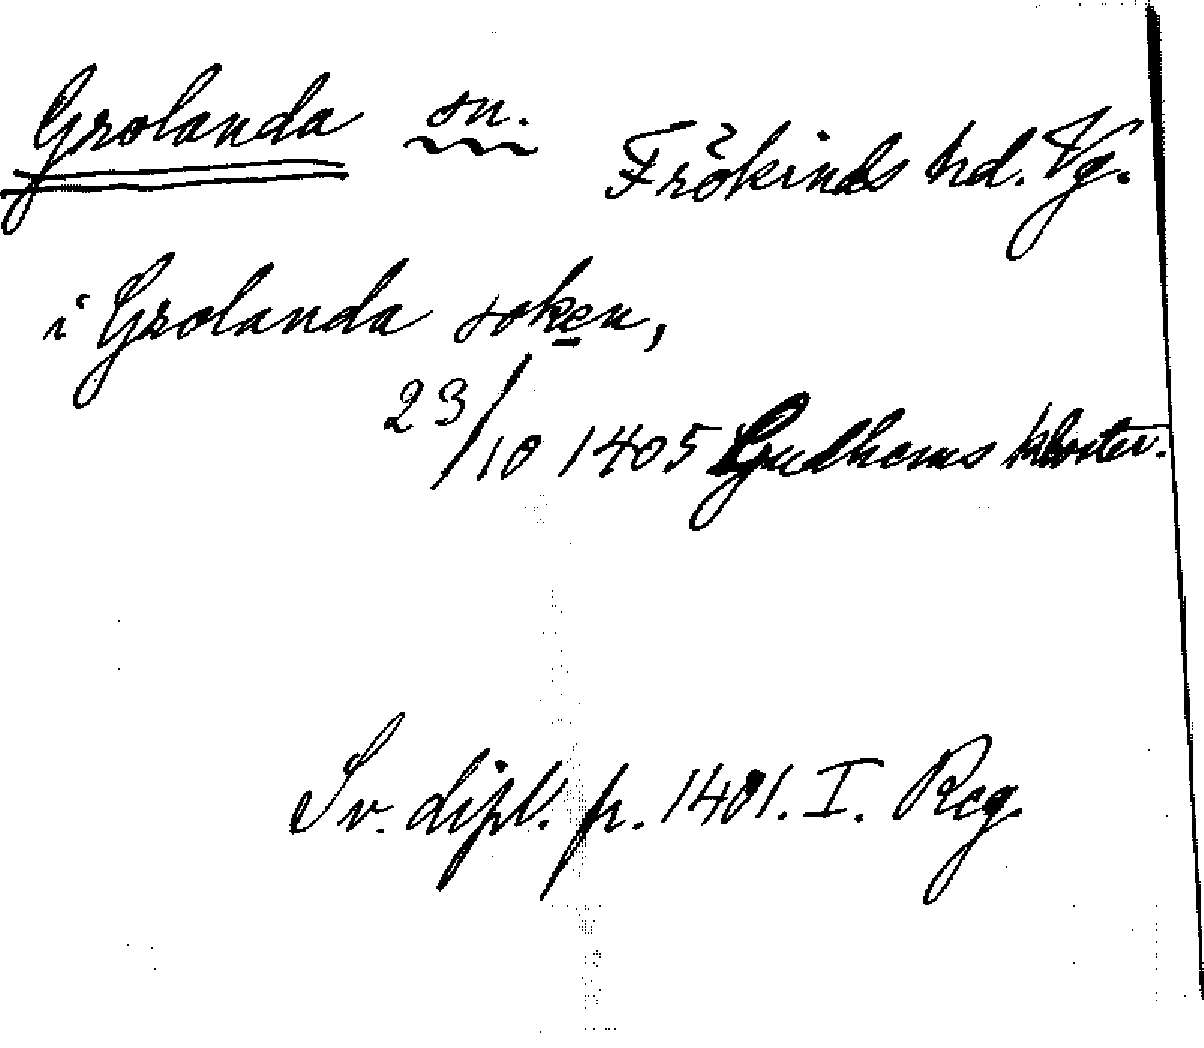 Grolanda sn. Frökinds hd. Vg.
i Grolanda soken,
23/10 1405 Gudhems kloster.
Sv. dipl. fr. 1401. I. Reg.